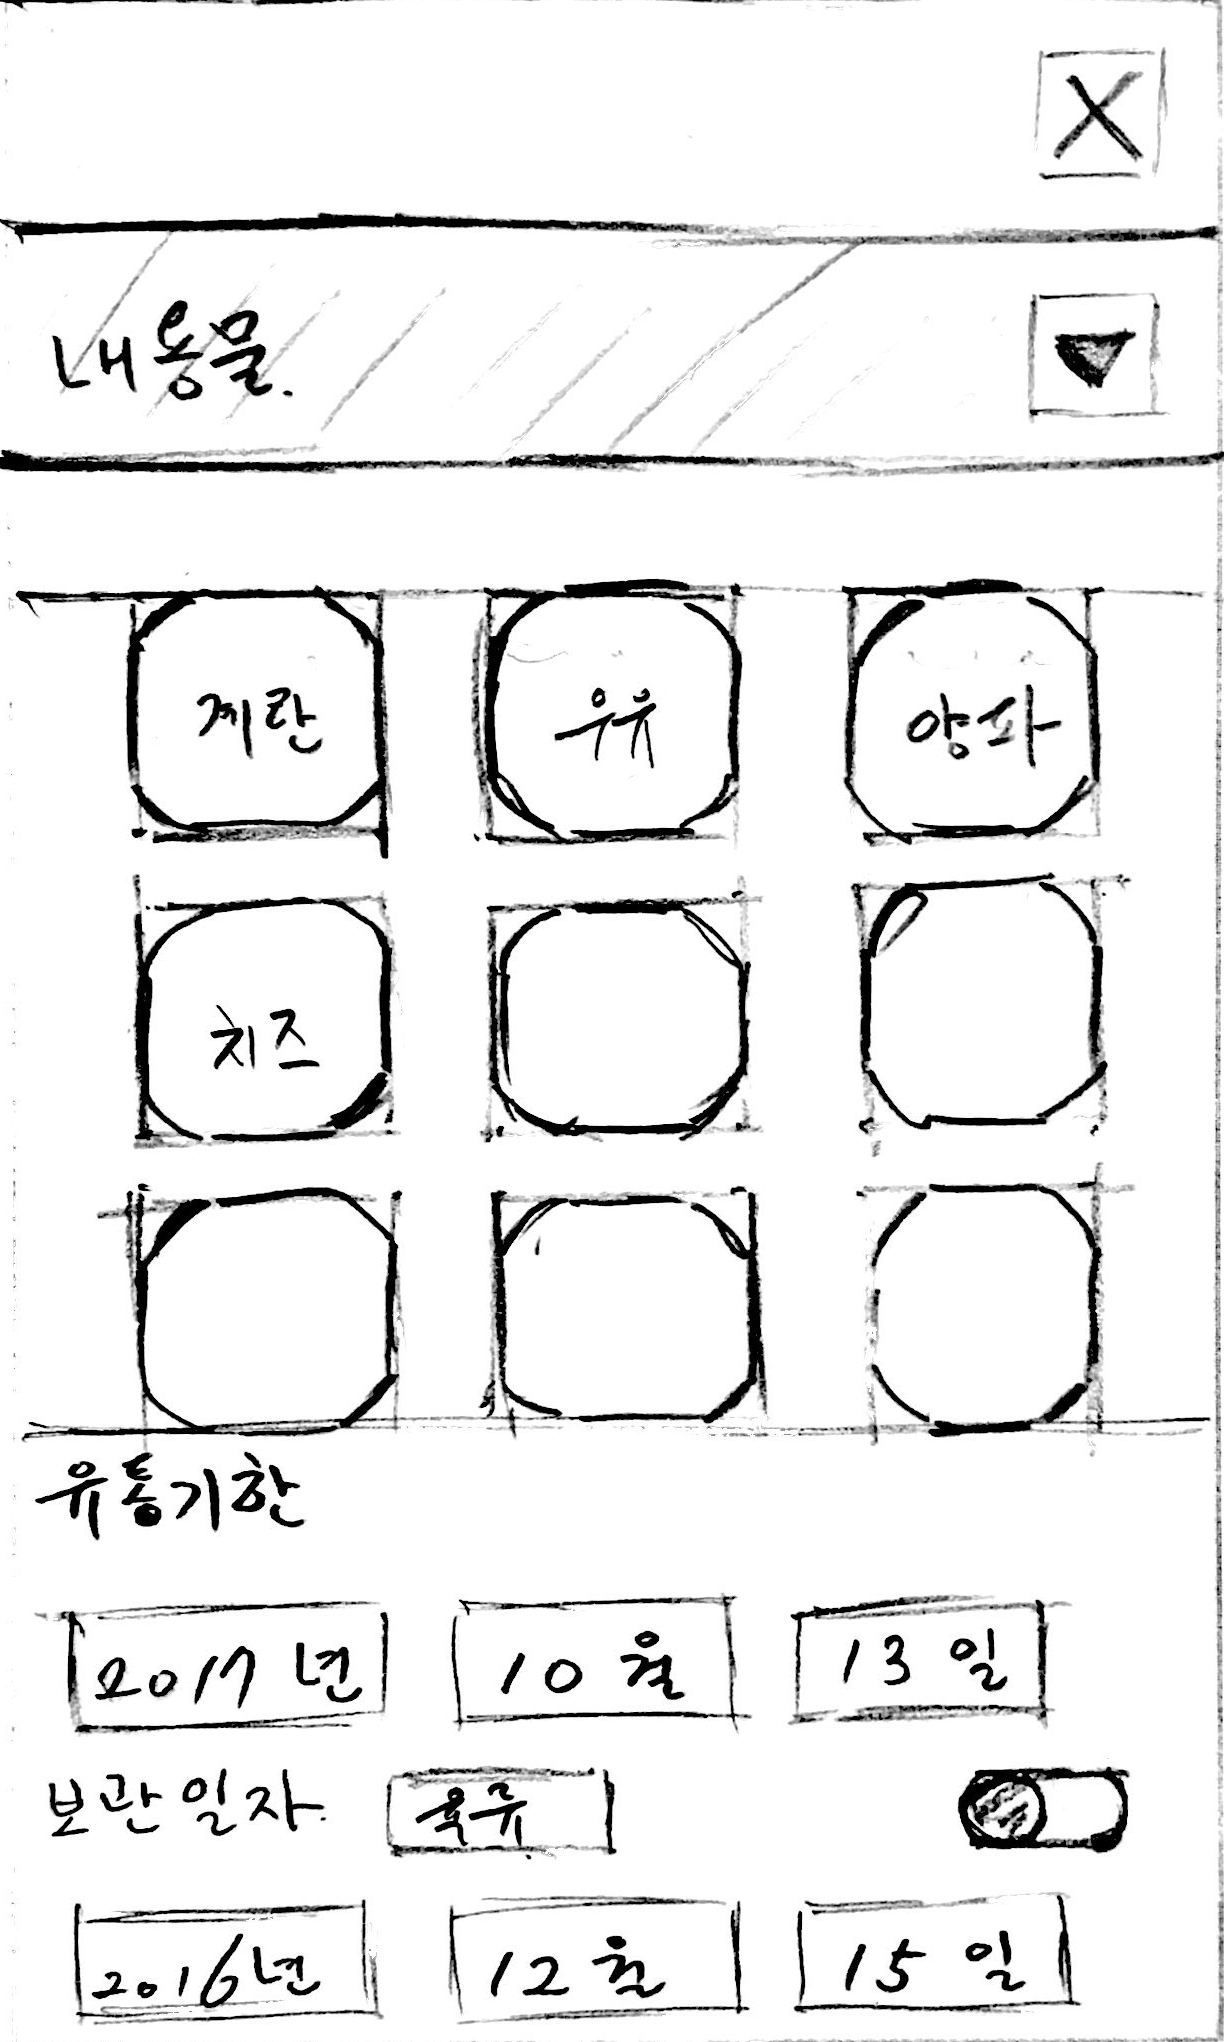 X
내용물.
계란 우유 양파
치즈
유통기한
2017년 10월 13일
보관일자. 육류
2016년 12월 15일